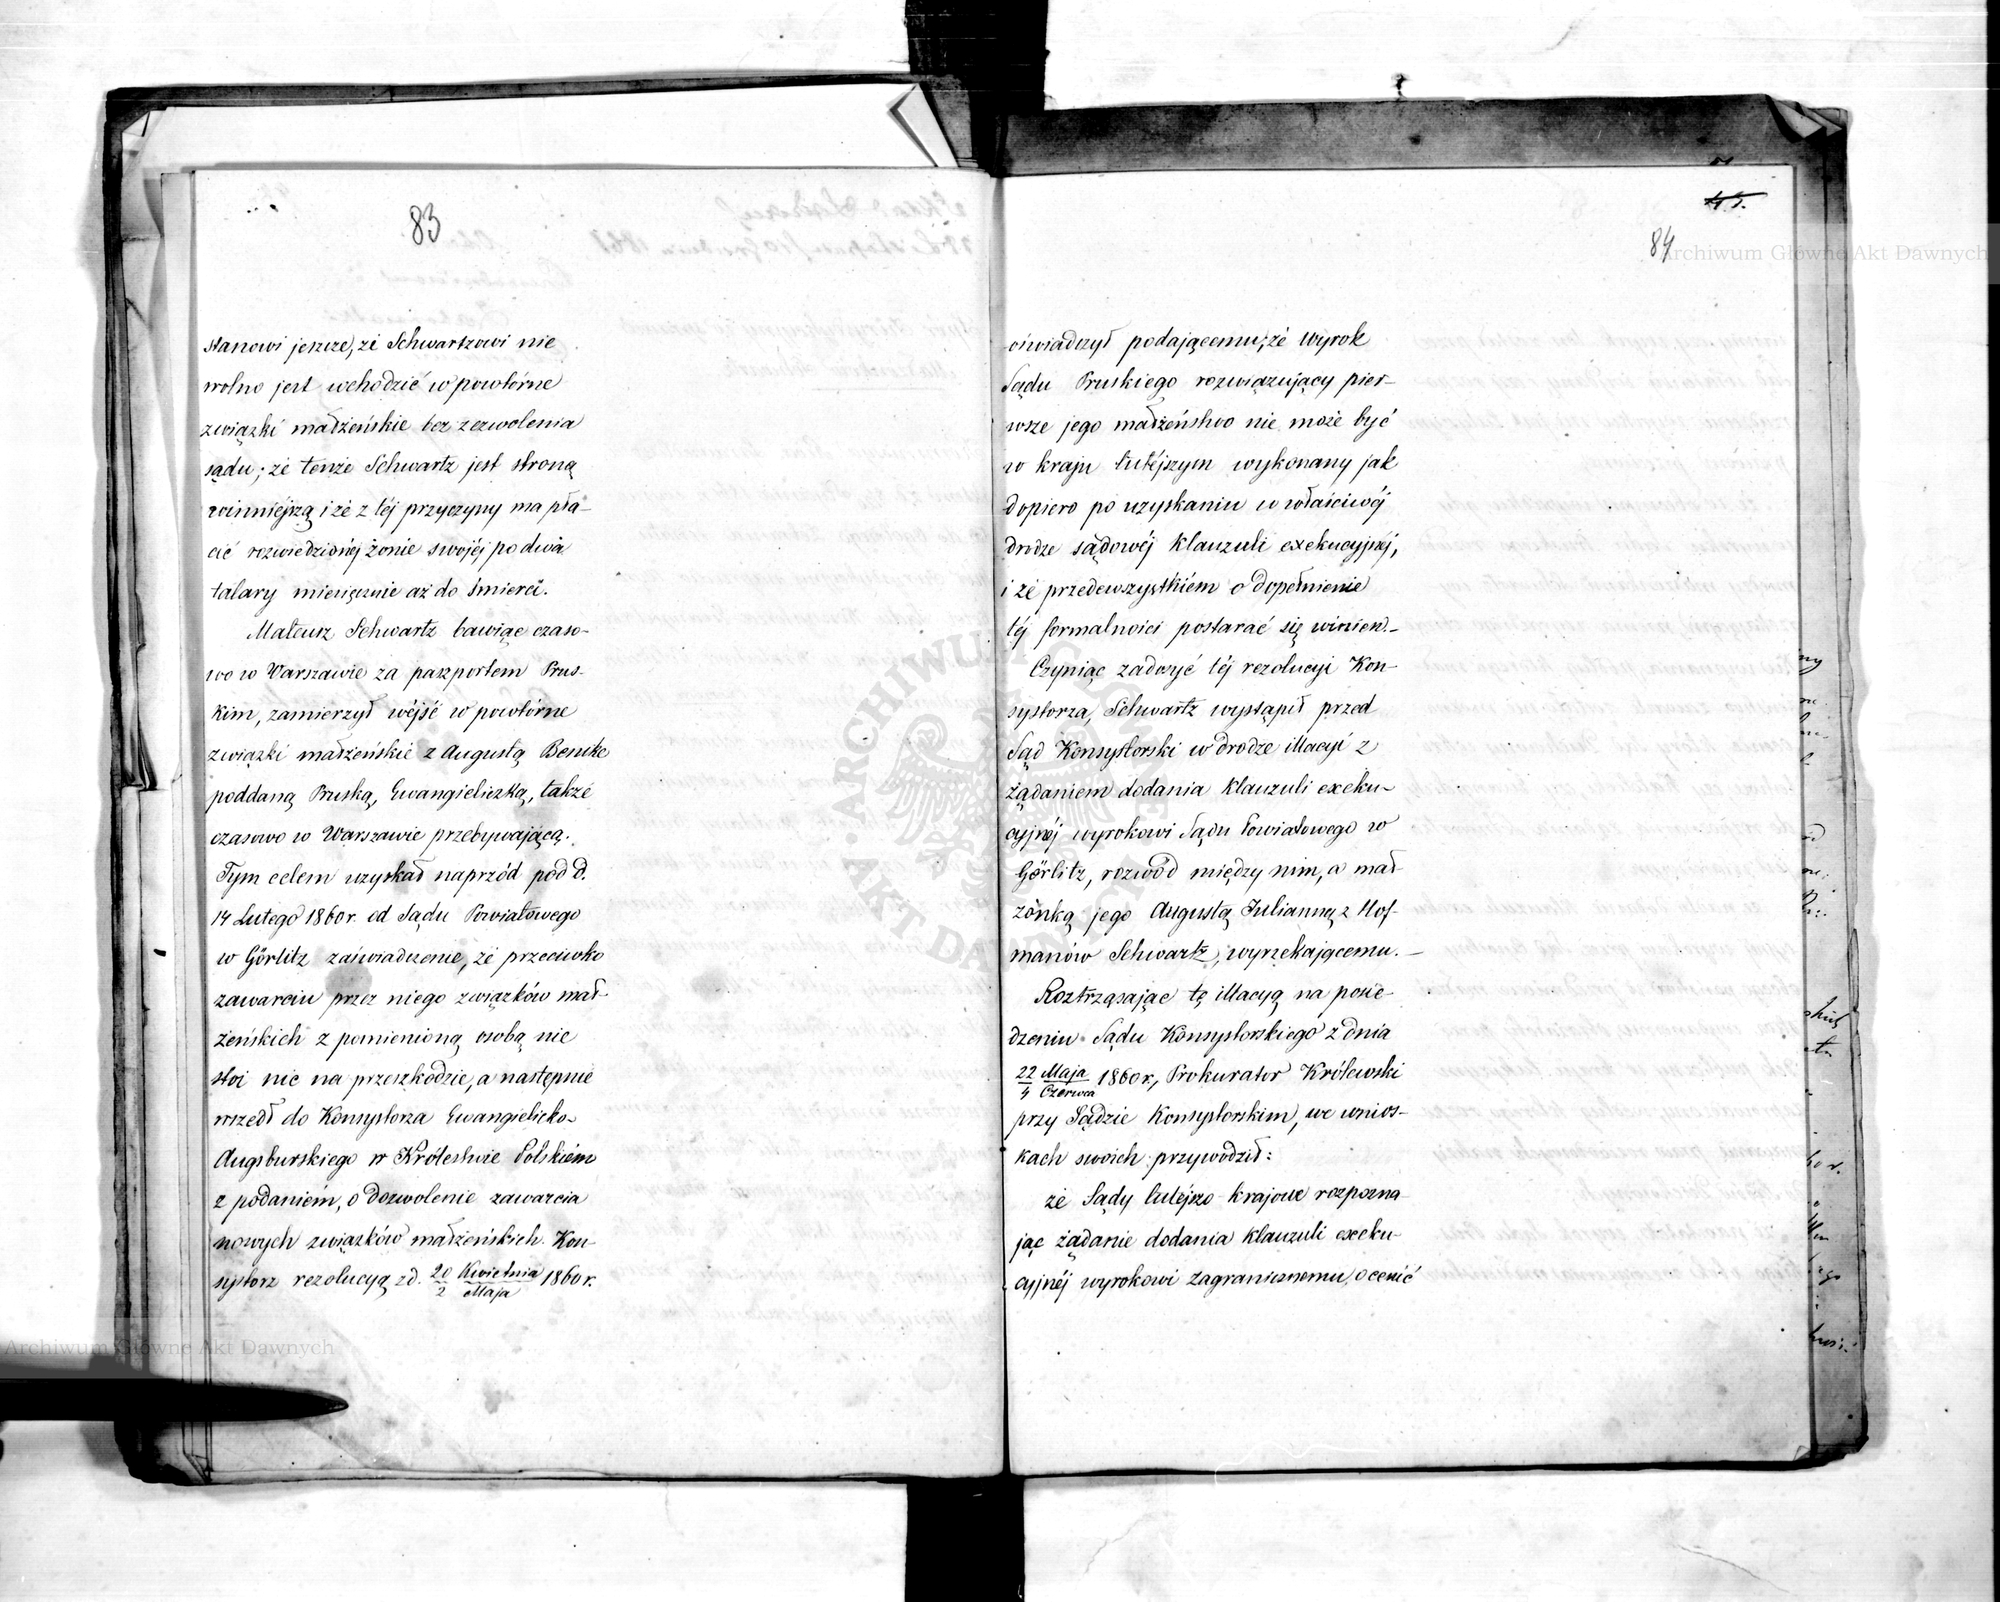 83
stanowi jeszcze, że Schwartzowi nie
wolno jest wchodzić w powtórne
związki małżeńskie bez zezwolenia
sądu; że tenże Schwartz jest stroną
winniejszą i że z téj przyczyny ma pła-
cić rozwiedzionéj żonie swojéj po dwa
talary miesięcznie aż do śmierci.
Mateusz Schwartz bawiąc czaso-
wo w Warszawie za paszportem Prus-
kim, zamierzył wéjść w powtórne
związki małżeńskie z Augustą Benike
poddaną Pruską, Ewangieliczką, także
czasowo w Warszawie przebywającą.
Tym celem uzyskał naprzód pod d.
14 Lutego 1860 r. od Sądu Powiatowego
w Görlitz zaświadczenie, że przeciwko
zawarciu przez niego związków mał-
żeńskich z pomienioną osobą nic
stoi nic na przeszkodzie, a następnie
wszedł do Konsystorza Ewangielicko-
Augsburskiego w Królestwie Polskiém
z podaniem, o dozwolenie zawarcia
nowych związków małżeńskich. Kon-
systorz rezolucyą z d. 20/2 Kwietnia/Maja 1860 r.
84
oświadczył podającemu, że wyrok
Sądu Pruskiego rozwiązujący pier-
wsze jego małżeństwo nie może być
w kraju tutéjszym wykonany jak
dopiero po uzyskaniu w właściwéj
drodze sądowéj klauzuli exekucyjnéj,
i że przedewszystkiém o dopełnienie
téj formalności postarać się winien.-
Czyniąc zadosyć téj rezolucyi Kon-
systorza, Schwartz wystąpił przed
Sąd Konsystorski w drodze illacyi z
żądaniem dodania klauzuli exeku-
cyjnéj wyrokowi Sądu Powiatowego w
Görlitz, rozwód między nim, a mał-
żonką jego Augustą Julianną z Hof-
manów Schwartz, wyrzekającemu.-
Roztrząsając tę illacyą na posie-
dzeniu Sądu Konsystorskiego z dnia
22/4 Maja/Czerwca 1860 r., Prokurator Królewski
przy Sądzie Konsystorskim, we wnios-
kach swoich przywodził:
że Sądy tutéjszo-krajowe rozpozna-
jąc żądanie dodania klauzuli exeku-
cyjnéj wyrokowi zagranicznemu, ocenić
Archiwum Główne Akt Dawnych
Archiwum Główne Akt Dawnych